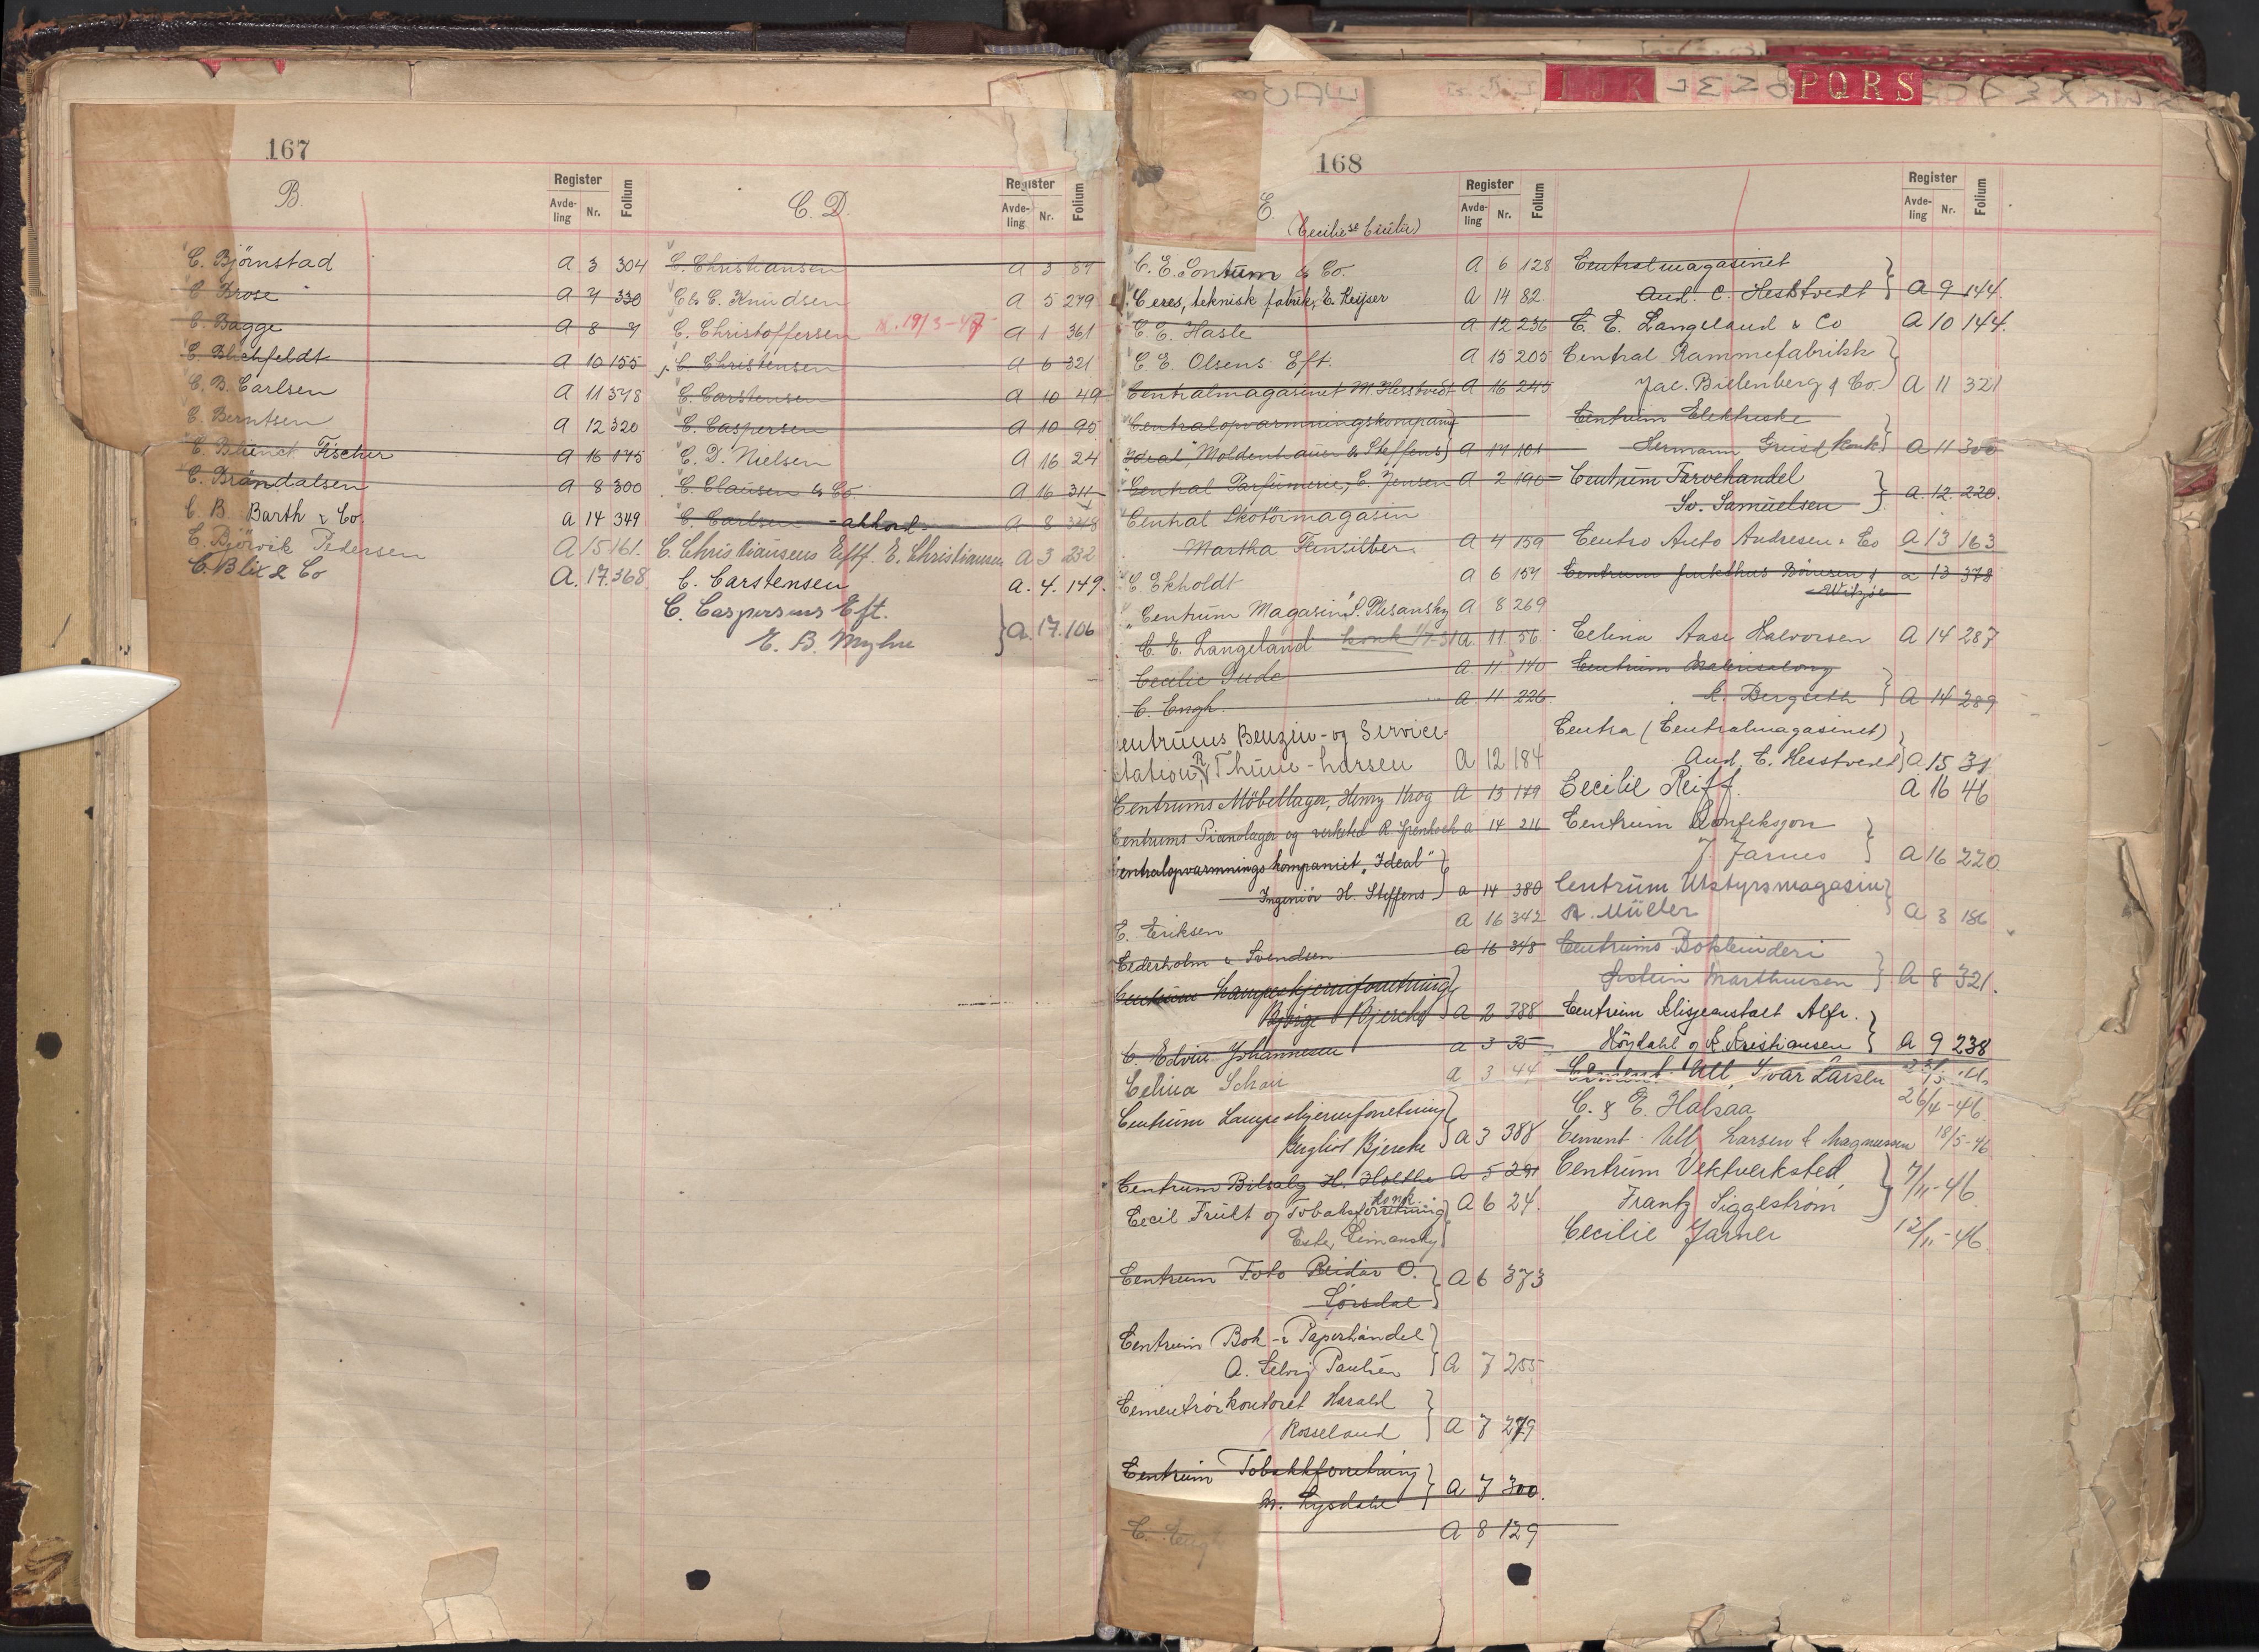 167
B.
Register
Avde-
ling
Nr.
Folium
C. Björnstad A 3 304
C. Brose A 7 330
C. Bagge A 8 9
C. Blichfeldt A 10 155
C. B. Carlsen A 11 378
C. Berntsen A 12 320
C. Fischer A 16 175
C. Brändalsen A 8 300
C. B. Barth & Co. A 14 349
C. Björvik Pedersen A 15 161.
C. Blix & Co A. 17. 368
C. D.
Register
Avde-
ling
Nr.
Folium
C. Christiansen A 3 87
C. & C. Knudsen A 5 279
C. Christoffersen 19/3-47 A 1 361
C. Christensen A 6 321
C. Carstensen A 10 49
C. Caspersen A 10 95
C. D. Nielsen A 16 24
C. Clausen & Co. A 16 311
C. Carlsen - akkord A 8 348
C. Christiansens Eftf. E. Christiansen A 3 232
C. Carstensen A. 4. 149.
C. Caspersens Eft.
E. B. Myhre A. 17. 106
168
E.
(Cecilie se Cicilie)
Register
Avde-
ling
Nr.
Folium
C. E. Sontum & Co. A 6 128
Ceres, teknisk fabrik, E. Keyser A 14 82
C. E. Hasle A 12 236
C. E. Olsens Eft. A 15 205
Centralmagasinet M. Hesstvedt A 16 245
Centralopvarmningskompani
Ideal, Moldenhauer & Steffens A 14 101
Central Parfumerie, C. Jensen A 2 190
Central Skotöimagasin
Martha A 4 159
C. Ekholdt A 6 157
"Centrum Magasin" S. Plesansky A 8 269
C. E. Langeland konk A. 11. 56.
Cecilie Gude A. 11. 140
C. Engh. A. 11. 226
entrums Benzin- og Service-
station, R Thune-Larsen A 12 184
Centrums Möbellager, Henry Krog A 13 179
Centrums Pianolager og verksted R. A 14 211
entralopvarmningskompaniet "Ideal"
Ingeniör H. Steffens A 14 380
C. Eriksen A 16 342
Cederholm & Svendsen A 16 348
Centrum Lampeskjermforretning
Bjercke A 2 388
C. Edvin Johannesen A 3 35
Celina Schau A 3 44
Centrum Lampeskjermforretning
Bergliot Bjercke A 3 388
Centrum Bilsalg H. Holthe A 5 291
Cecil Frukt og Tobaksforretning konk.
Ester Limansky A 6 24.
Centrum Foto Reidar O.
Sørsdal A 6 373
Centrum Bok- & Papirhandel
A. Selvig Paulsen A 7 255
Cementrörkontoret Harald
Rosseland A 7 279
Centrum Tobakkforretning
M. Lysdahl A 7 300.
C. Eng A 8 129
Register
Avde-
ling
Nr.
Folium
Centralmagasinet
Aud. C. Hesstvedt A 9 144.
C. E. Langeland & Co A 10 144.
Central Rammefabrikk
Jac. Bielenberg & Co. A 11 321
Centrum Elektriske
Hermann konk A 11 300
Centrum Farvehandel
Sv. Samuelsen A. 12. 220.
Centro Auto Andresen & Co A 13 163
Centrum A 13 378
Celina Aase Halvorsen A 14 287
Centrum
A. Bergseth A 14 289
Centra (Centralmagasinet)
Aud. C. Hesstvedt A. 15 31
Cecilie Reiff. A 16 46
Centrum Konfeksjon
J. Jarnes A 16 220
Centrum Utstyrsmagasin
A. Müller A 3 186
Centrums Bokbinderi
Marthinsen A 8 321.
Centrum Klisjeanstalt Alfr.
Höydahl og K. Kristiansen A 9 238
Cement Utl. Ivar Larsen
C. & E. Halsaa 26/4-46
Cement Utl. Larsen & Magnussen 18/5-46
Centrum Vektverksted
Frantz Siggelström 7/11-46
Cecilie Jarner 13/11-46
I J K
PQRS